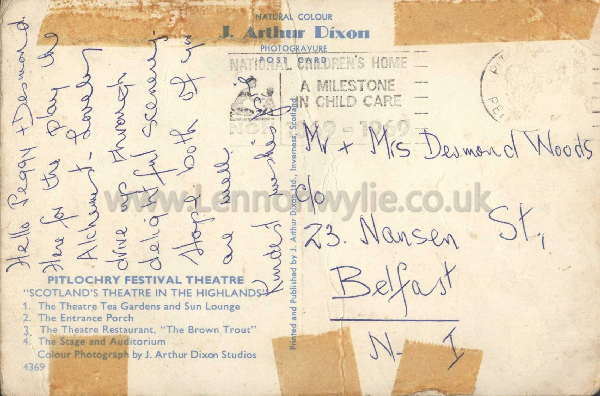 NATURAL COLOUR
J. Arthur Dixon
PHOTOGRAVURE
POST CARD
NATIONAL CHILDREN'S HOME
A MILESTONE
IN CHILD CARE
NCH 1869-1969
PIT
PE
Hello Peggy + Desmond
Here for the Play the
Alchemist - Lovely
drive up through
delightful scenery.
Hope both of you
are well.
Kindest wishes
Mr + Mrs Desmond Woods
c/o
23. Nansen St,
Belfast
N. I
www.Lennonwylie.co.uk
Printed and Published by J. Arthur Dixon Ltd., Inverness, Scotland.
PITLOCHRY FESTIVAL THEATRE
"SCOTLAND'S THEATRE IN THE HIGHLANDS"
1. The Theatre Tea Gardens and Sun Lounge
2. The Entrance Porch
3. The Theatre Restaurant, "The Brown Trout"
4. The Stage and Auditorium
Colour Photograph by J. Arthur Dixon Studios
4369